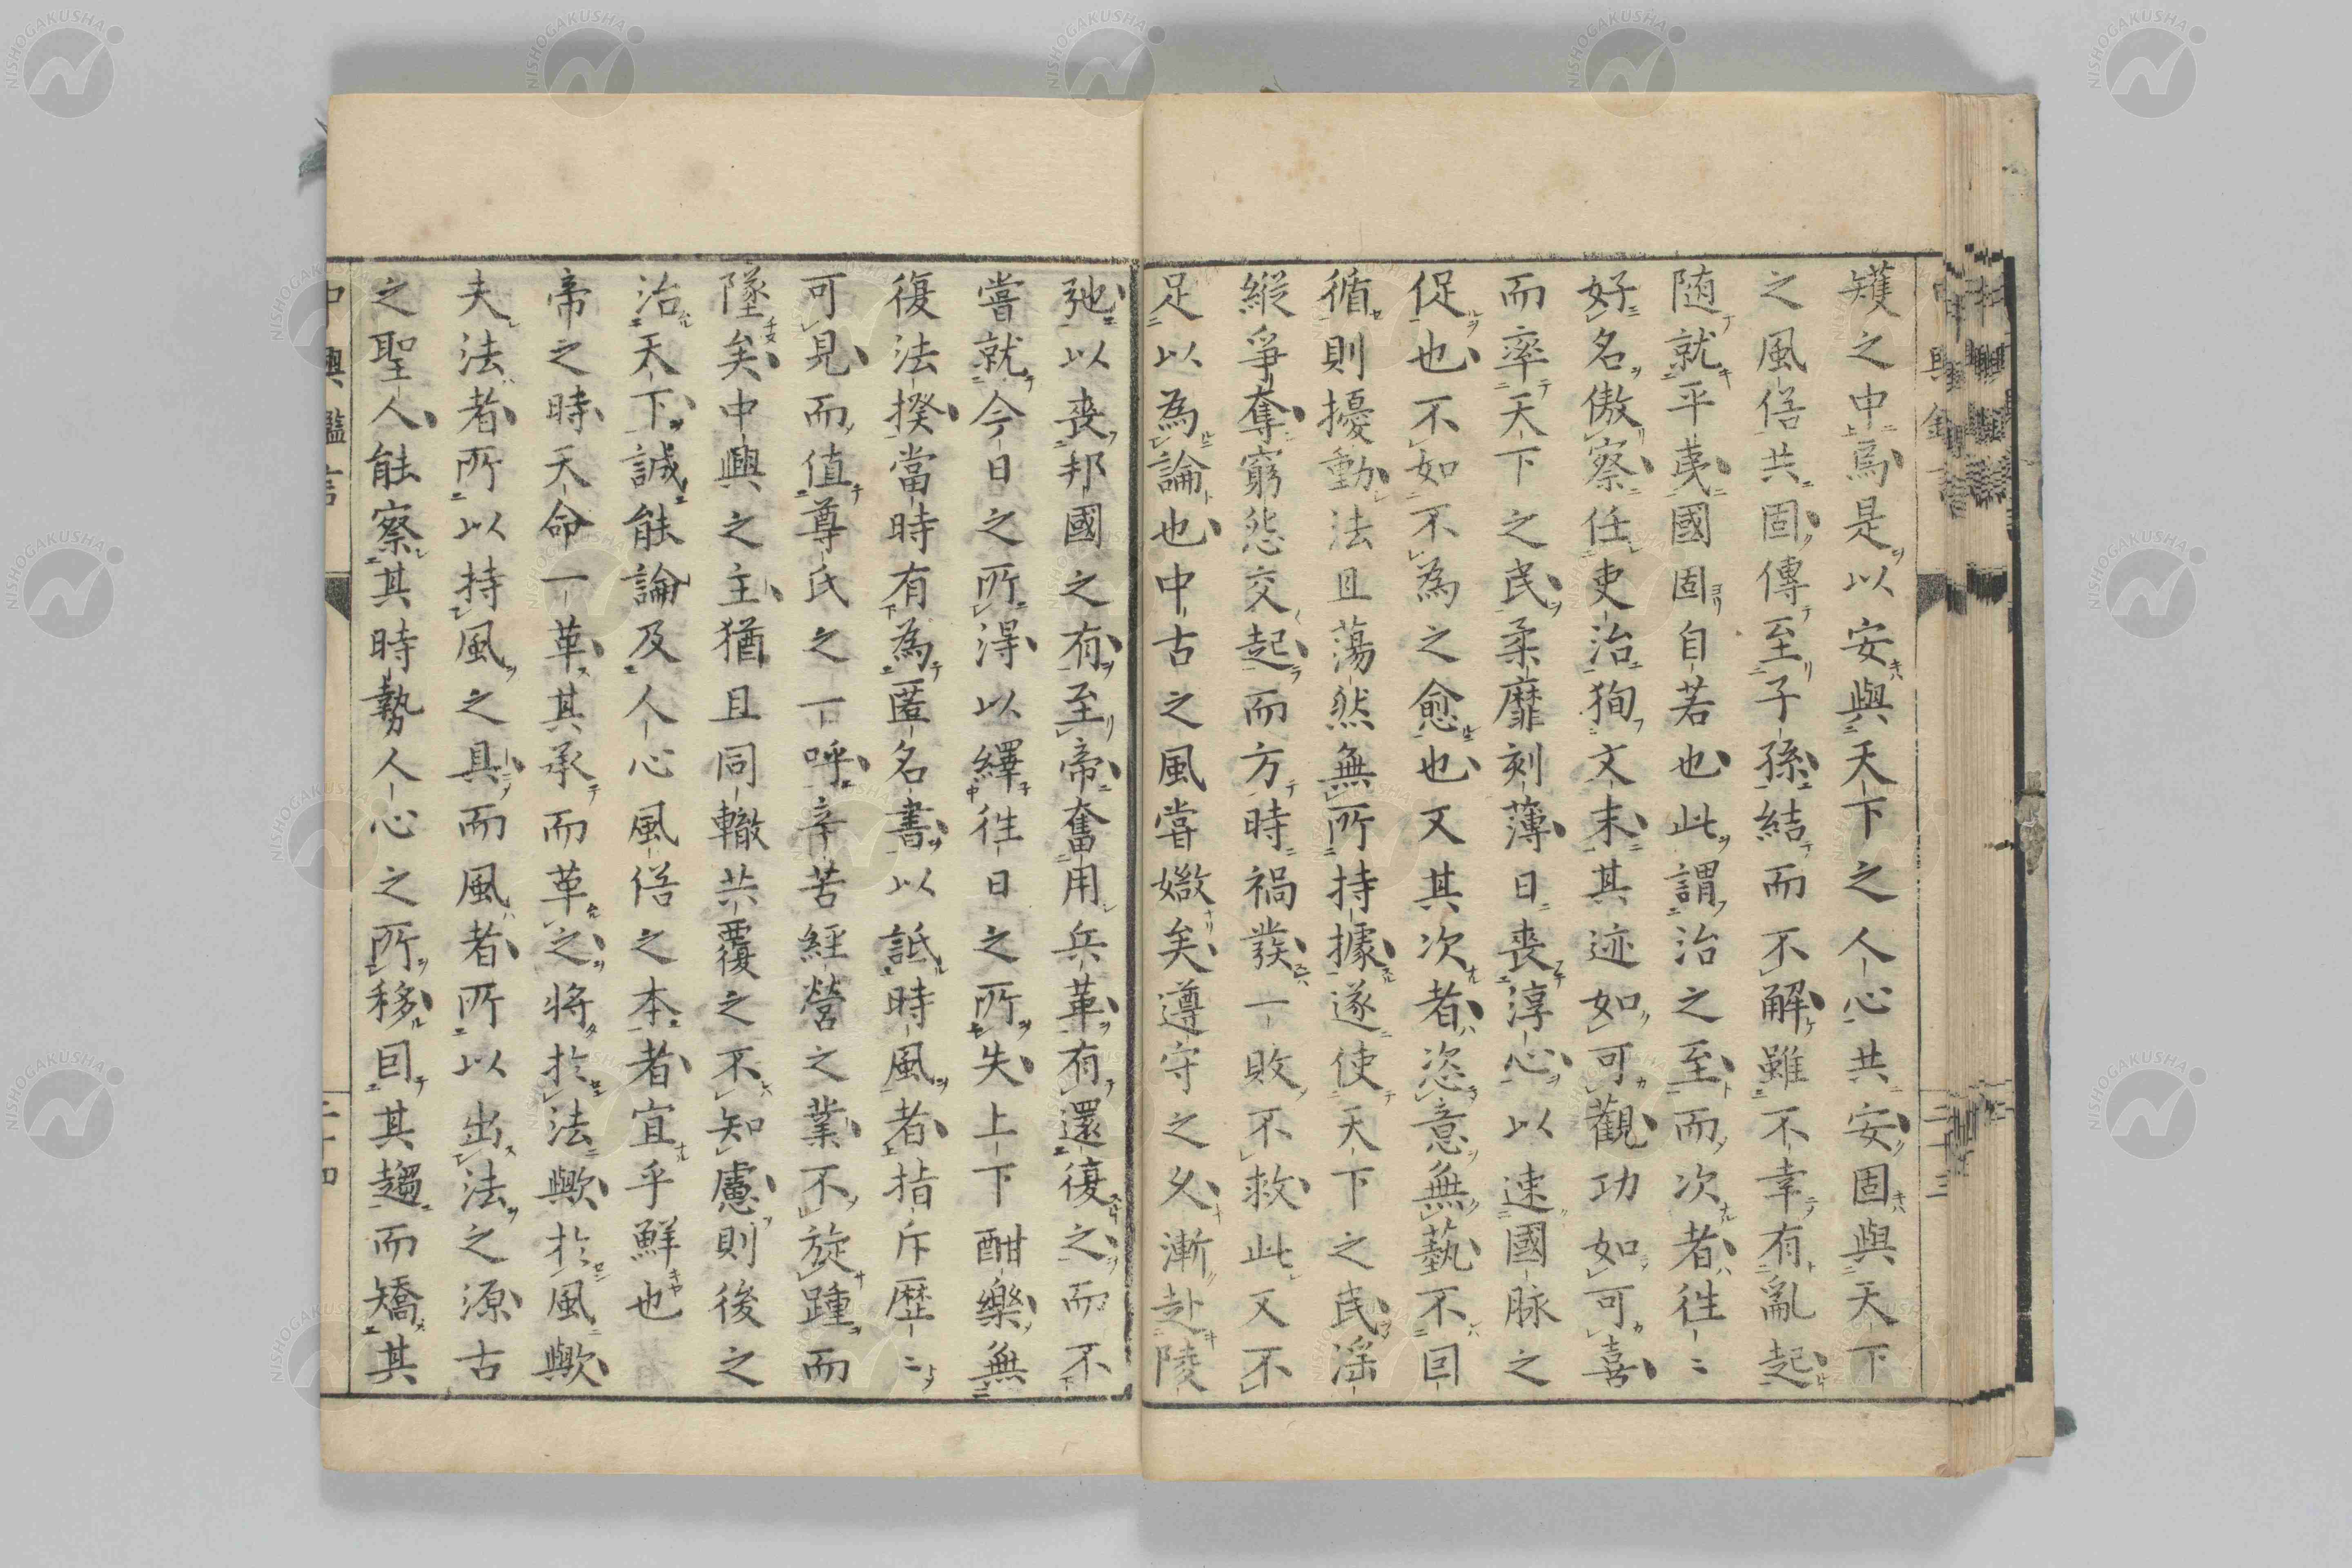 矱之中焉是以安與天下之人心共安固與天下
之風俗共固傳至子孫結而不解雖不幸有亂起
随就平夷國固自若也此謂治之至而次者往〻
好名傲察任吏治狥文末其迹如可觀功如可喜
而率天下之民柔靡刻薄日喪淳心以速國脉之
促也不如不為之愈也又其次者恣意無藝不因
循則擾動法且蕩然無所持據遂使天下之民滛
縱爭奪窮愁交起而方時禍發一敗不救此又不
足以為論也中古之風嘗媺矣遵守之久漸赴陵
弛以喪邦國之有至帝奮用兵革有還復之而不
嘗就今日之所得以繹徃日之所失上下酣樂無
復法揆當時有為匿名書以詆時風者指斥歴〻
可見而值尊氏之一呼辛苦經營之業不旋踵而
墜矣中興之主猶且同轍共覆之不知慮則後之
治天下誠能論及人心風俗之本者宜乎鮮也
帝之時天命一革其承而革之將於法歟於風歟
夫法者所以持風之具而風者所以出法之源古
之聖人能察其時勢人心之所移因其趨而矯其
中興鑑言
二十四